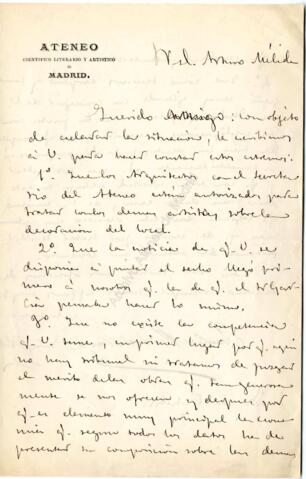 ATENEO
CIENTÍFICO LITERARIO Y ARTÍSTICO
DE
MADRID.
Sr. D. Arturo Mélida
Querido Amigo: con objeto
de aclarar la situación, le escribimos
á V. para hacer constar estos extremos:
1º. Que los Arquitectos con el Secreta
rio del Ateneo están autorizados para
tratar con los demas artistas sobre la
decoración del local.
2º. Que la noticia de q. V. se
disponia á pintar el techo llegó pri
mero á nosotros q. la de q. el Sr
pensaba hacer lo mismo.
3º. Que no existe la competencia
q. V. teme, en primer lugar por q. aqui
no hay tribunal ni tratamos de juzgar
el mérito de las obras q. tan generosa
mente se nos ofrecen y despues por
q. es elemento muy principal la econo
mía q. segun todos los datos ha de
presentar su composición sobre las demas